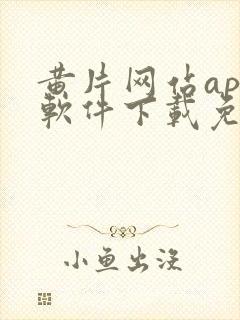 黄片网佔ap
軟件下載免
小鱼出没